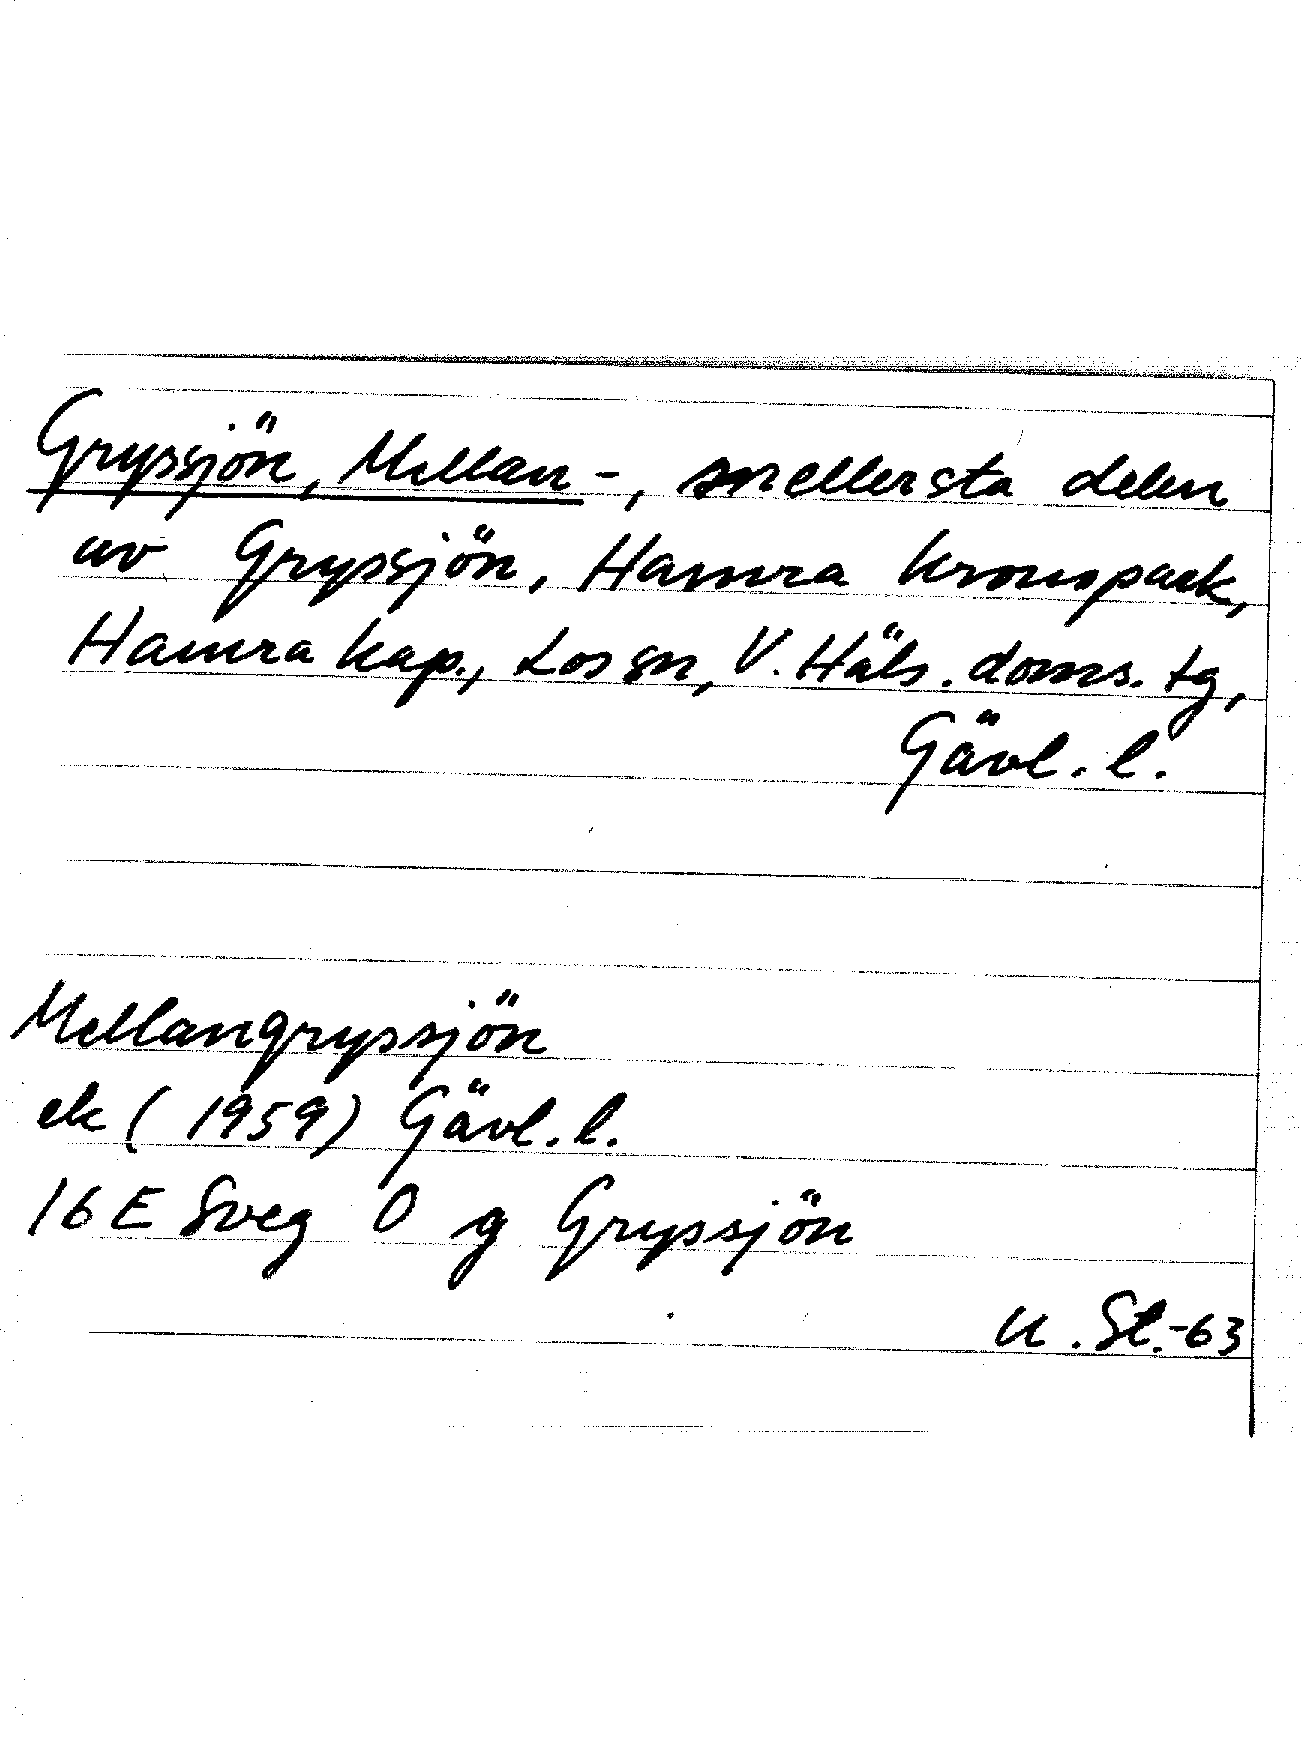 Gryssjön, Mellan-, mellersta delen
av Gryssjön, Hamra kronopark,
Hamra kap., Los sn, V. Häls. doms. tg,
Gävl. l.
Mellangryssjön
ek (1959) Gävl. l.
16 E Sveg O g Gryssjön
U. St.-63